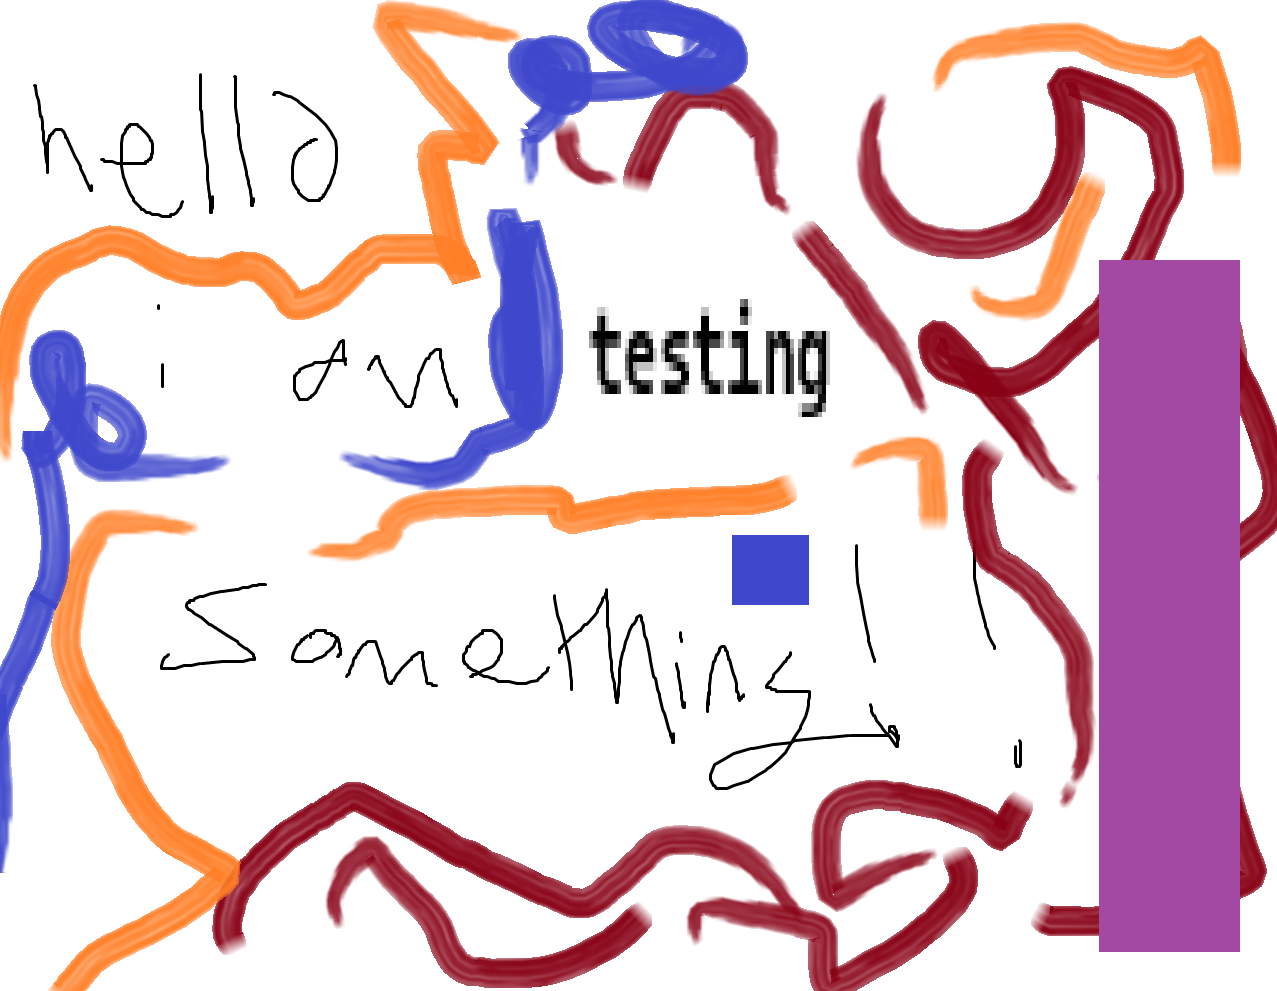 hello
i am testing
something!!